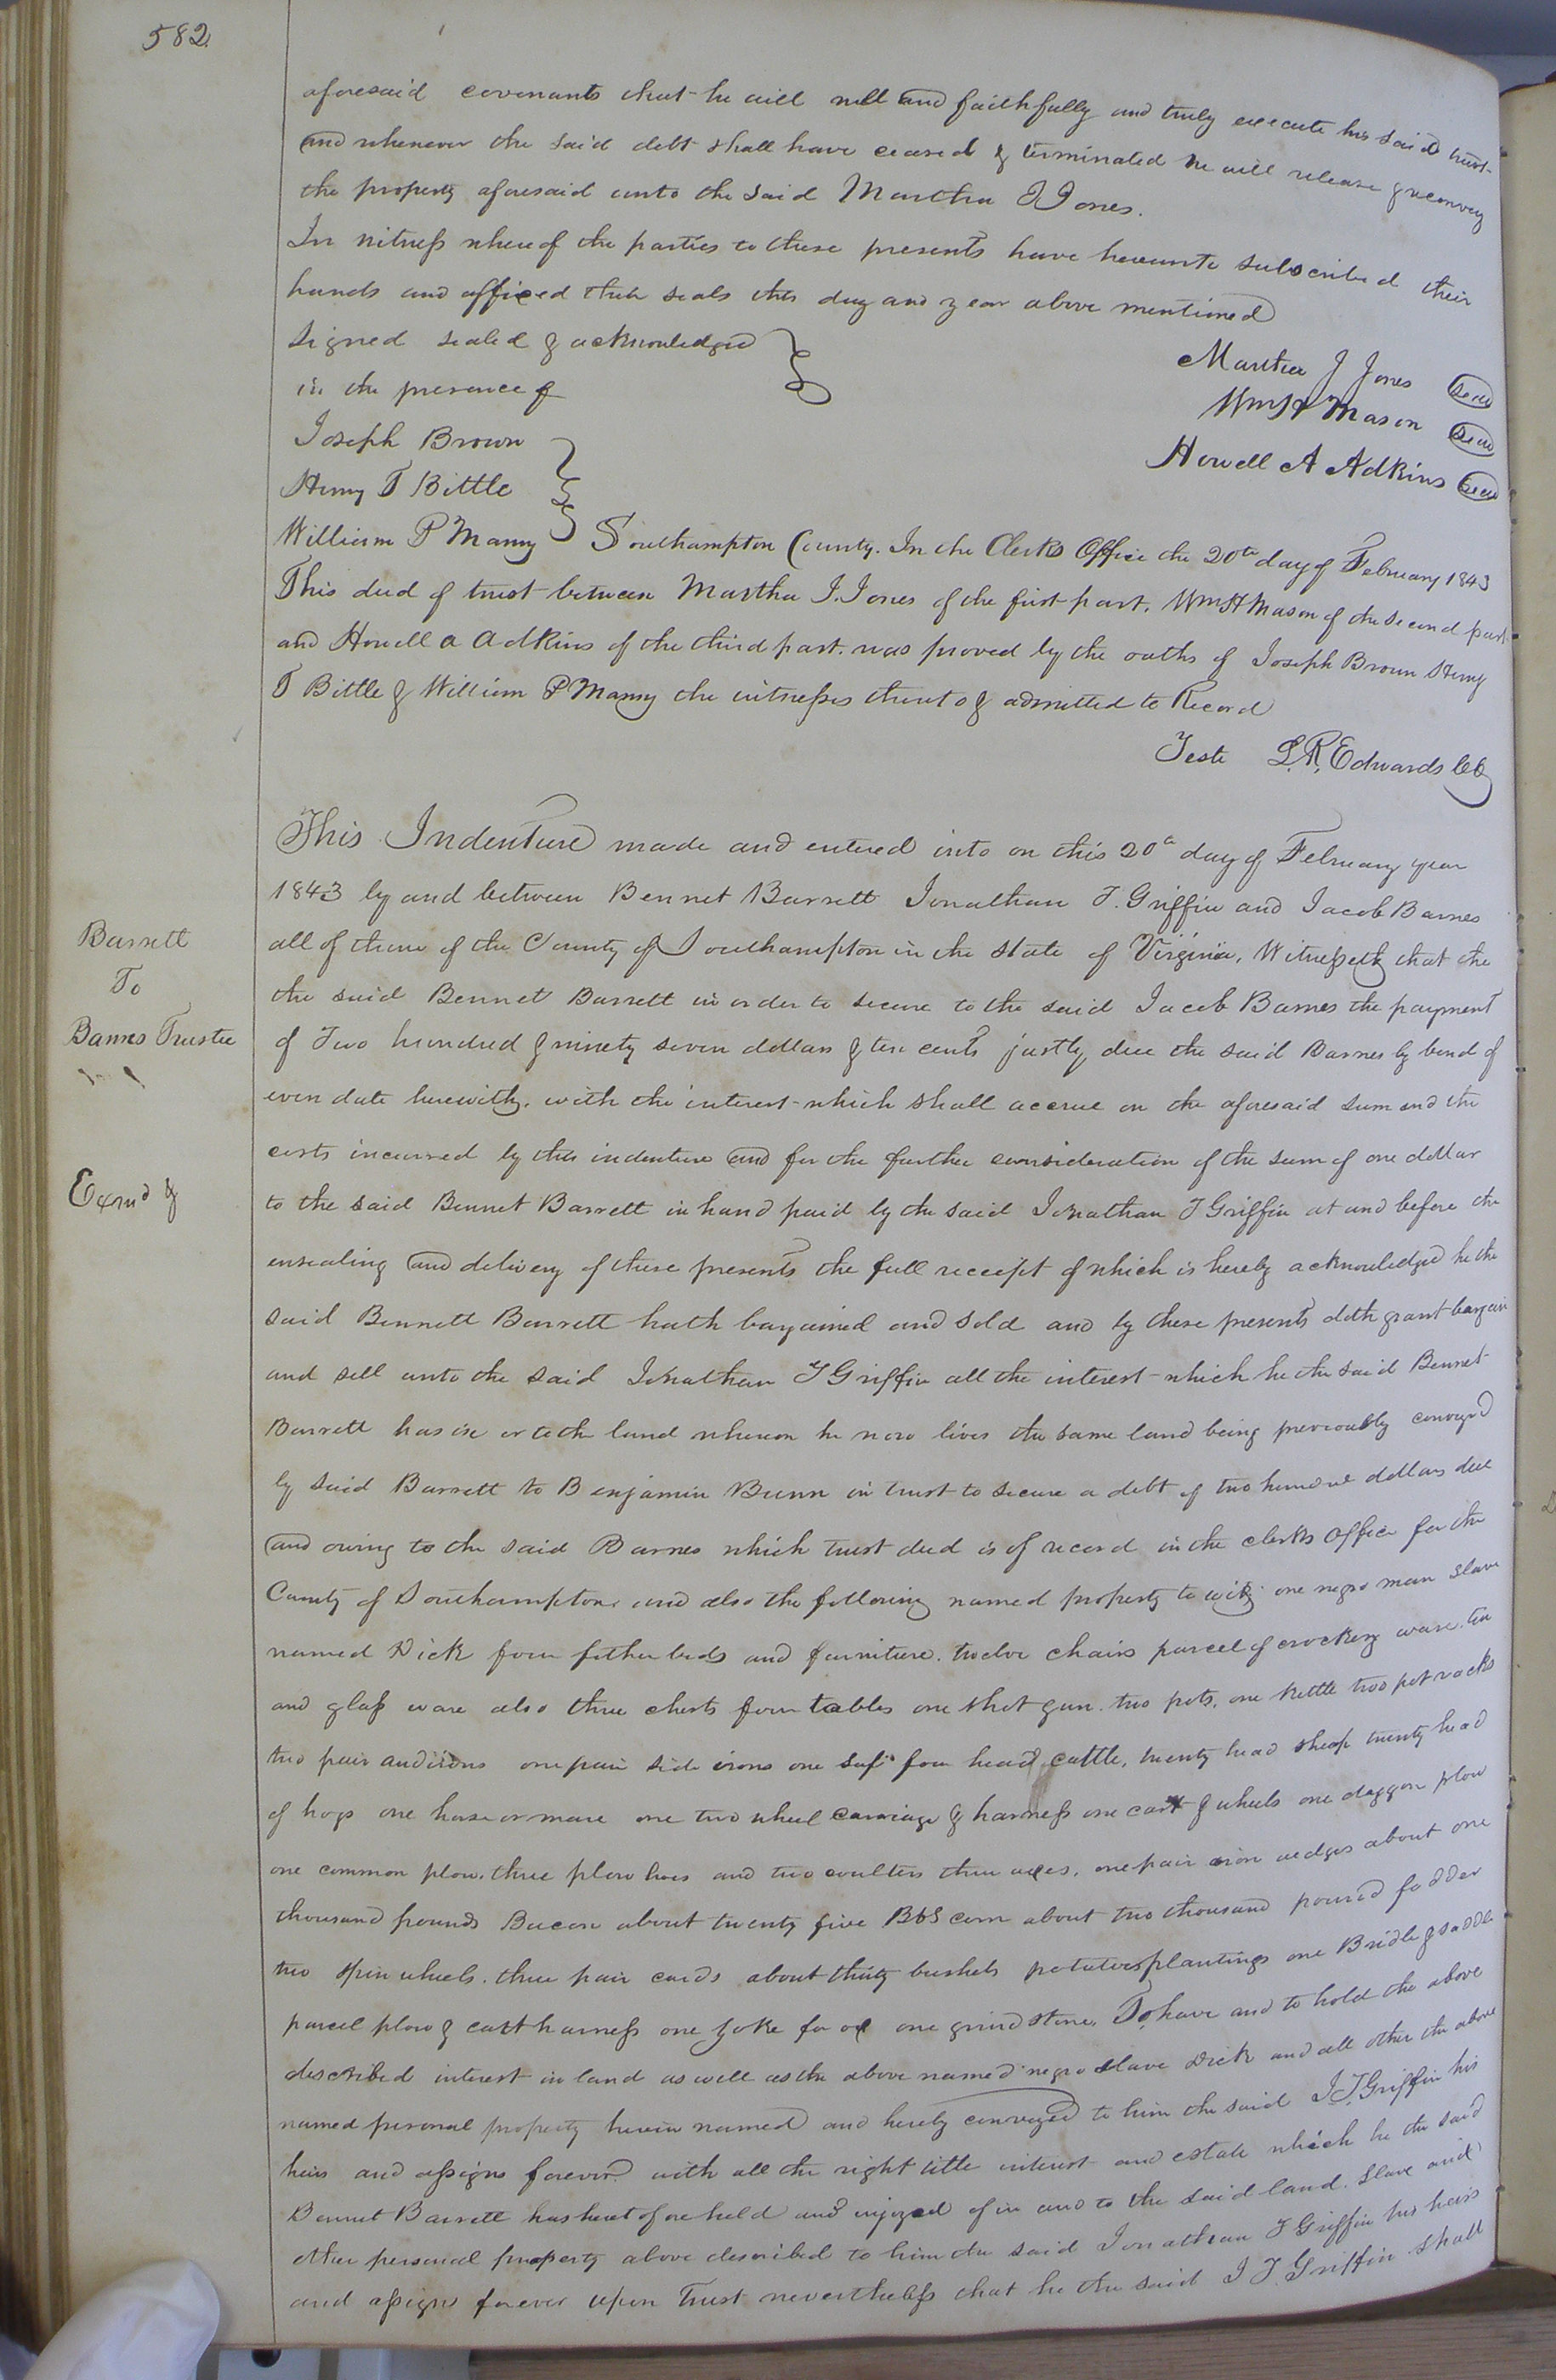 582
aforesaid covenants that he will well and faithfully and truly execute his said trust
and whenever the said debt shall have ceased & terminated he will release & reconvey
the property aforesaid unto the said Martha J Jones.
In witness whereof the parties to these presents have hereunto subscribed their
hands and affixed their seals the day and year above mentioned
Signed sealed & acknowledged
in the presence of
Martha J Jones Seal
Wm H Mason Seal
Howell A Adkins Seal
Joseph Brown
Henry T Bittle
William P Manry
Southampton County. In the Clerks Office the 20th day of February 1843
This deed of trust between Martha J. Jones of the first part, Wm H Mason of the second part
and Howell A Adkins of the third part. was proved by the oaths of Joseph Brown Henry
T Bittle & William P Manry the witnesses thereto & admitted to Record
Teste L. R. Edwards Clk
Barrett
To
Barnes Trustee
Exmd &
This Indenture made and entered into on this 20th day of February year
1843 by and between Bennet Barrett Jonathan T. Griffin and Jacob Barnes
all of them of the County of Southampton in the state of Virginia, Witnesseth that the
the said Bennet Barrett in order to secure to the said Jacob Barnes the payment
of Two hundred & ninety seven dollars & ten cents justly due the said Barnes by bond of
even date herewith, with the interest which shall accrue on the aforesaid sum and the
costs incurred by this indenture and for the further consideration of the sum of one dollar
to the said Bennet Barrett in hand paid by the said Jonathan T Griffin at and before the
ensealing and delivery of these presents the full receipt of which is hereby acknowledged he the
said Bennett Barrett hath bargained and sold and by these presents doth grant bargain
and sell unto the said Jonathan T Griffin all the interest which he the said Bennet
Barrett has in or to the land whereon he now lives the same land being previously conveyed
by said Barrett to Benjamin Bunn in trust to secure a debt of two hundred dollars due
and owing to the said Barnes which trust deed is of record in the clerks Office for the
County of Southampton, and also the following named property to wit; one negro man slave
named Dick four fether beds and furniture. twelve chairs parcel of crockery ware. tin
and glass ware also three chests four tables one shot gun. two pots. one kettle two pot racks
two pair andirons one pair side irons one safe four head cattle, twenty head sheep twenty head
of hogs one horse or mare one two wheel carriage & harness one cart & wheels one daggon plow
one common plow. three plow hoes and two coulters three axes. one pair iron wedges about one
thousand pounds Bacon about twenty five Bbs corn about two thousand pound fodder
two spin wheels. three pair cards about thirty bushels potatoes plantings one Bridle & saddle
parcel plow & cart harness one yoke for ox one grind stone. To have and to hold the above
described interest in land as well as the above named negro slave Dick and all other the above
named personal property herein named and hereby conveyed to him the said J. T. Griffin his
heirs and assigns forever with all the right title interest and estate which he the said
Bennet Barrett has heretofore held and enjoyed of in and to the said land. Slave and
other personal property above described to him the said Jonathan T Griffin his heirs
and assigns forever upon Trust nevertheless that he the said J T. Griffin shall